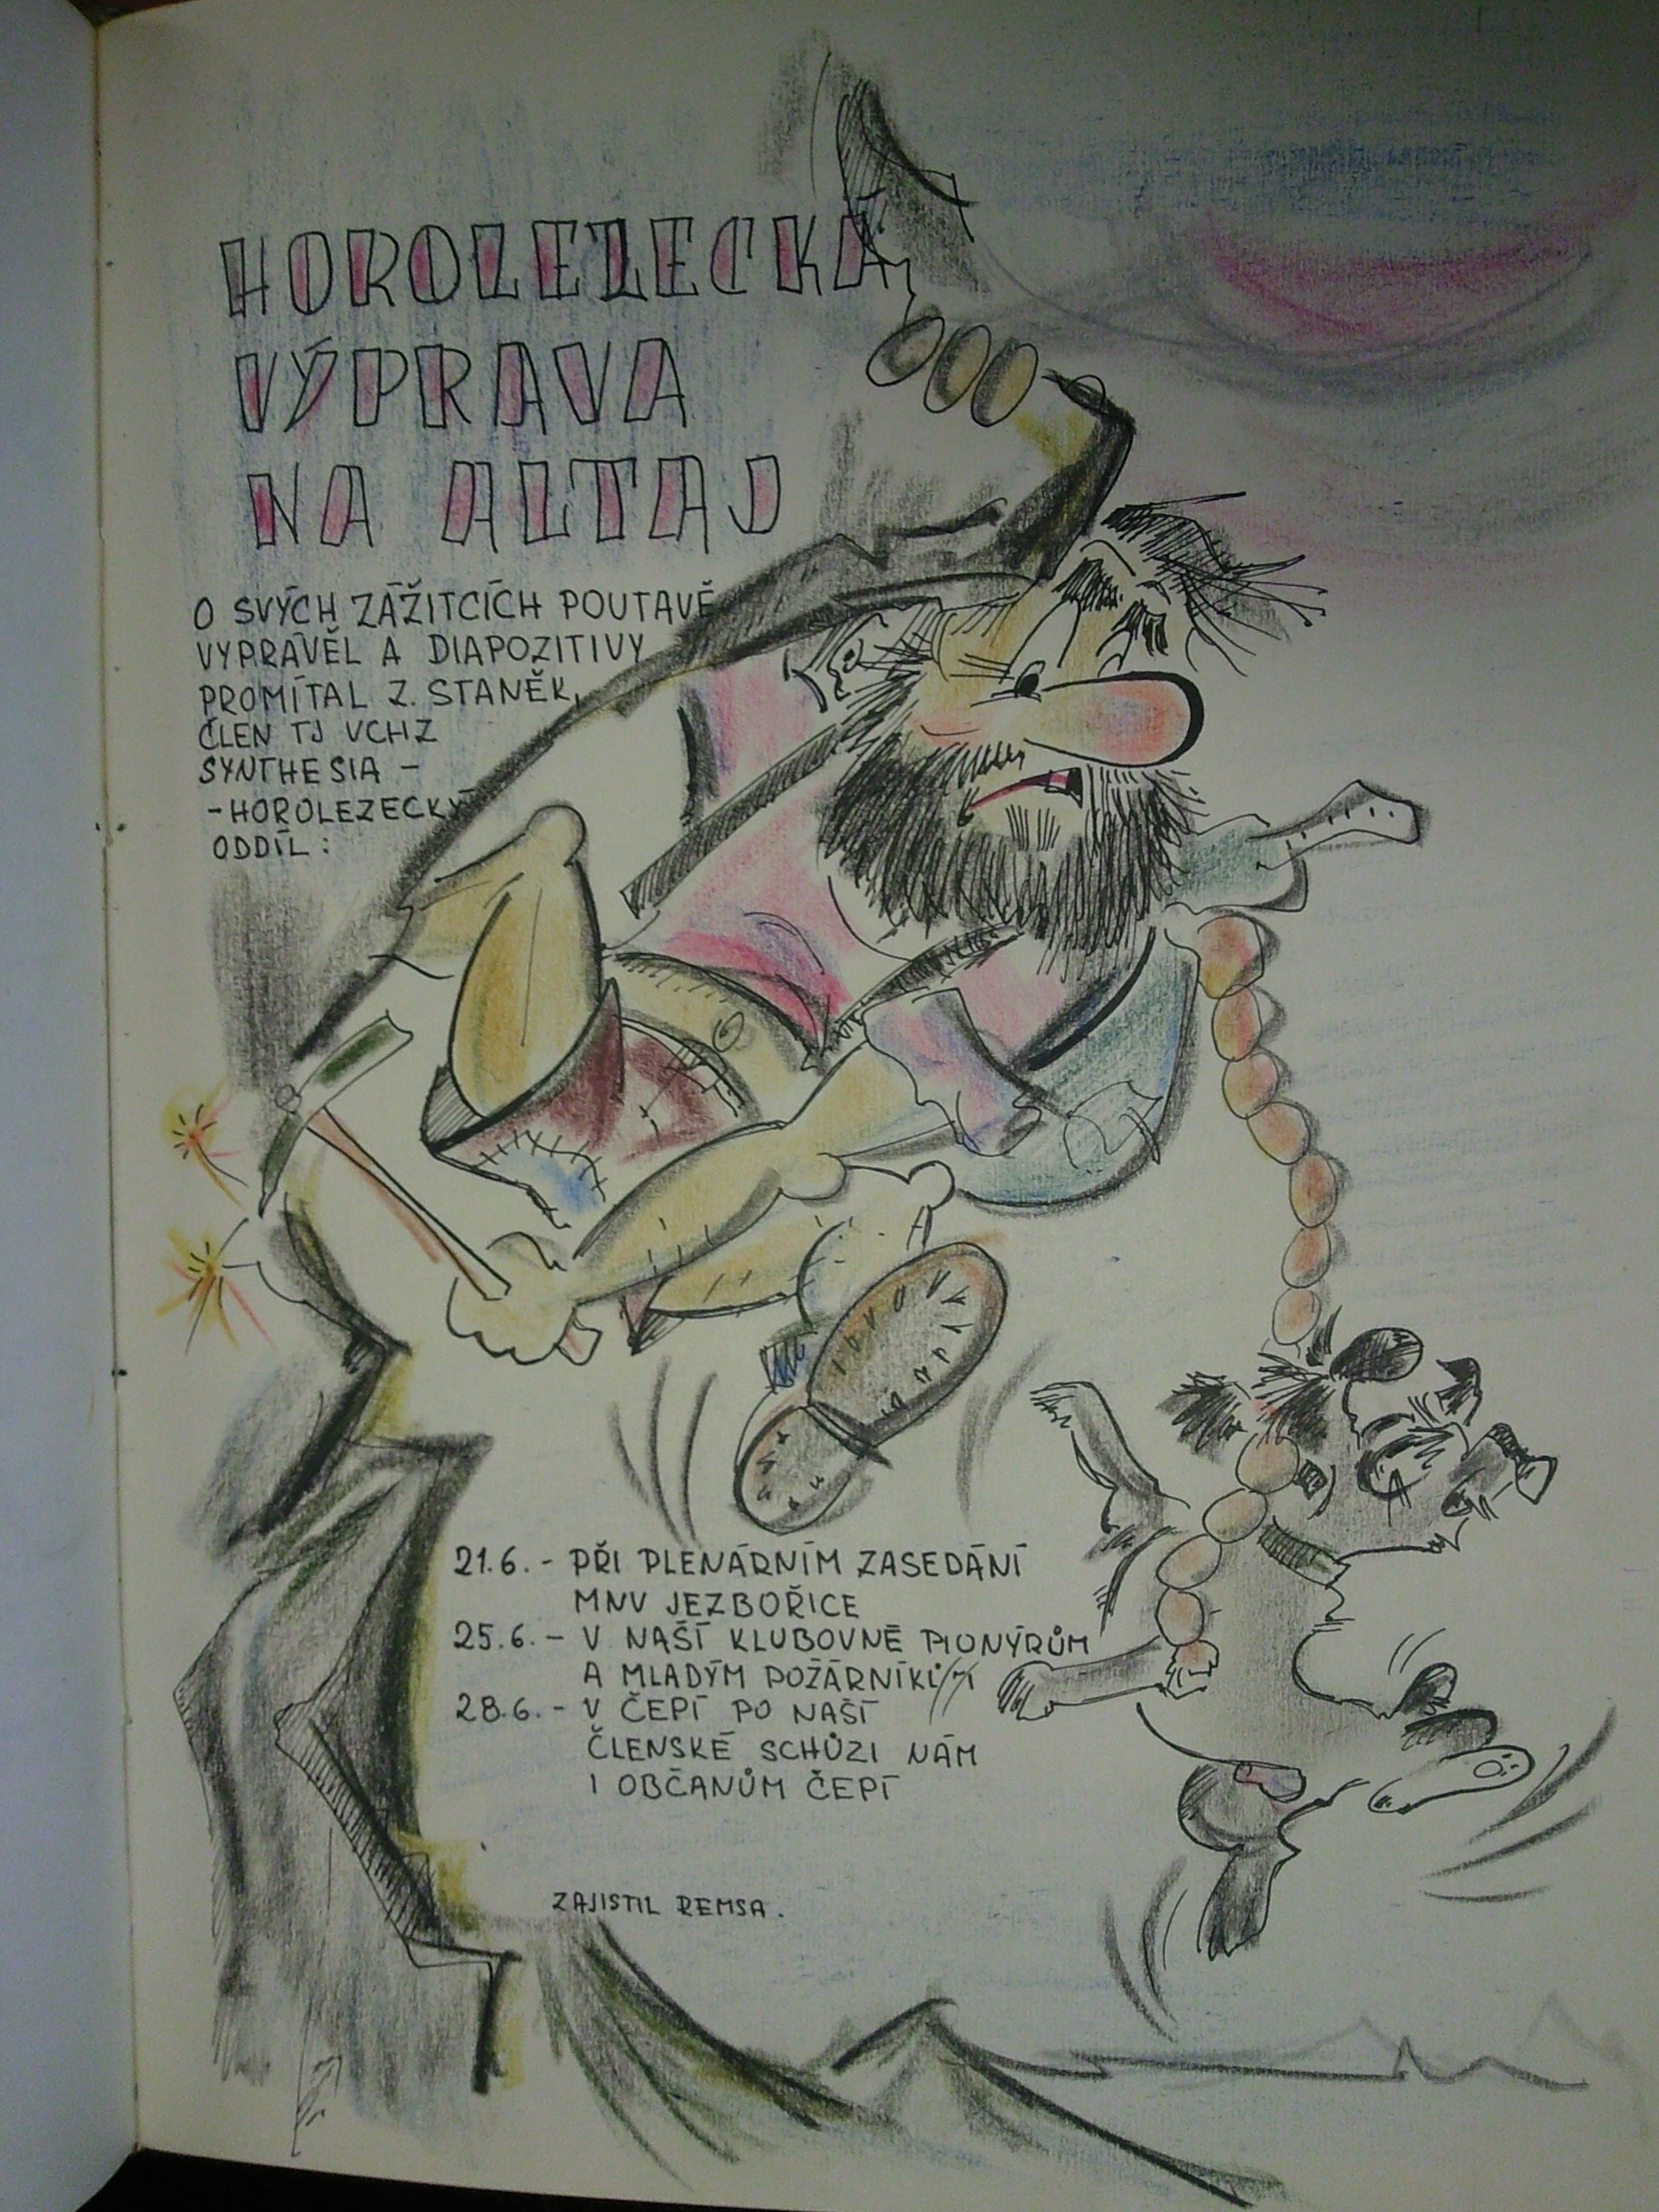 HOROLEZECKÁ
VÝPRAVA
NA ALTAJ
O SVÝCH ZÁŽITCÍCH POUTAVĚ
VYPRÁVĚL A DIAPOZITIVY
PROMÍTAL Z. STANĚK,
ČLEN TJ VCHZ
SYNTHESIA -
-HOROLEZECKÝ
ODDÍL:
21.6. - PŘI PLENÁRNÍM ZASEDÁNÍ
MNV JEZBOŘICE
25.6. - V NAŠÍ KLUBOVNĚ PIONÝRŮM
A MLADÝM POŽÁRNÍKŮM
28.6. - V ČEPÍ PO NAŠÍ
ČLENSKÉ SCHŮZI NÁM
I OBČANŮM ČEPÍ
ZAJISTIL REMSA.